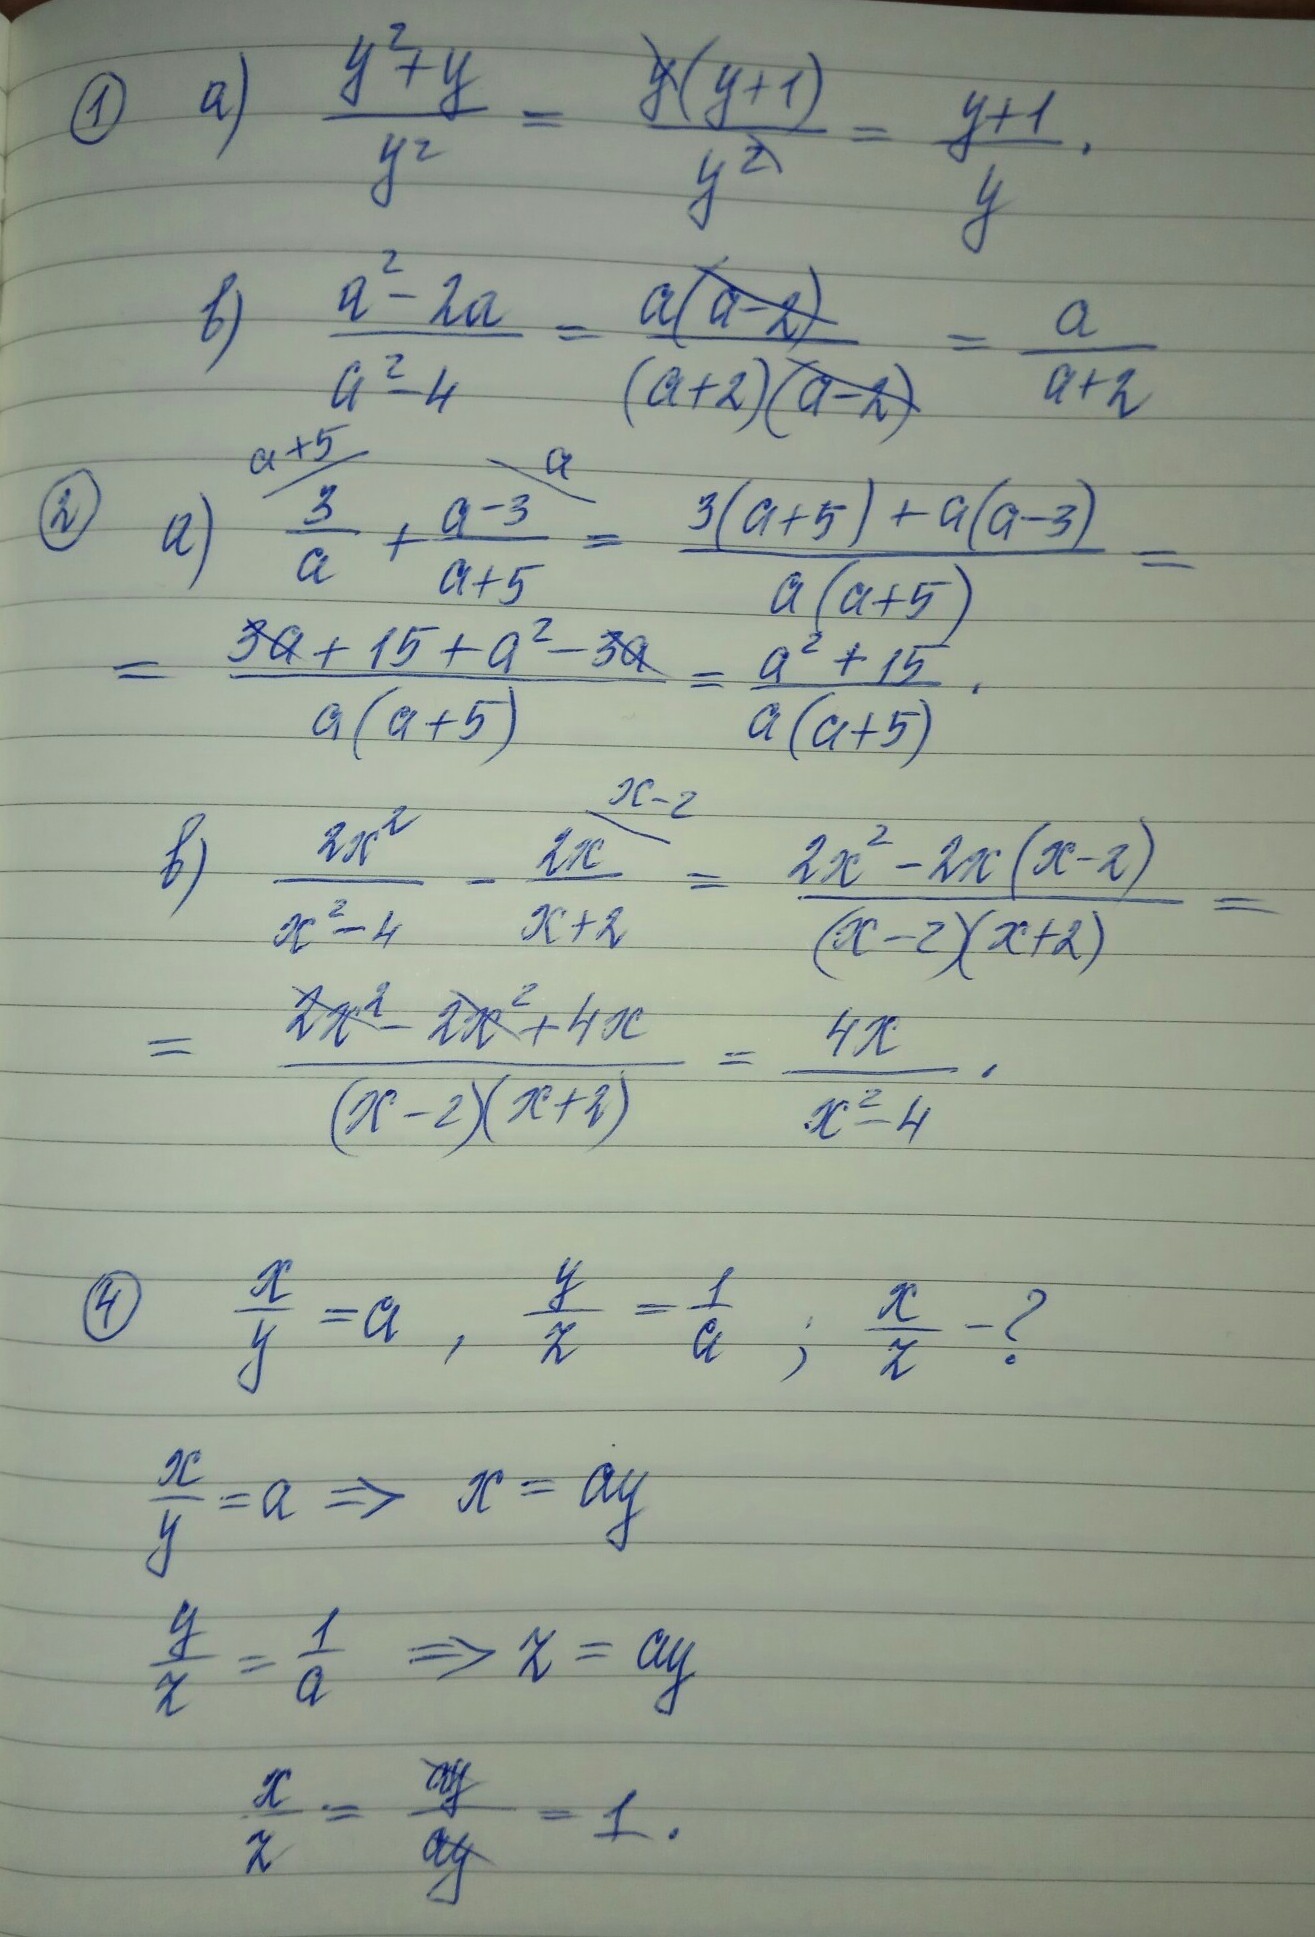 ① а) (y²+y)/y² = y(y+1)/y² = (y+1)/y.
в) (a²-2a)/(a²-4) = a(a-2)/((a+2)(a-2)) = a/(a+2)
② а) a+5⟋ 3/a + ⟍a (a-3)/(a+5) = (3(a+5)+a(a-3))/(a(a+5)) =
= (3a+15+a²-3a)/(a(a+5)) = (a²+15)/(a(a+5)).
в) 2x²/(x²-4) - ⟍x-2 2x/(x+2) = (2x²-2x(x-2))/((x-2)(x+2)) =
= (2x²-2x²+4x)/((x-2)(x+2)) = 4x/(x²-4).
④ x/y = a, y/z = 1/a; x/z - ?
x/y = a ⇒ x = ay
y/z = 1/a ⇒ z = ay
x/z = ay/ay = 1.